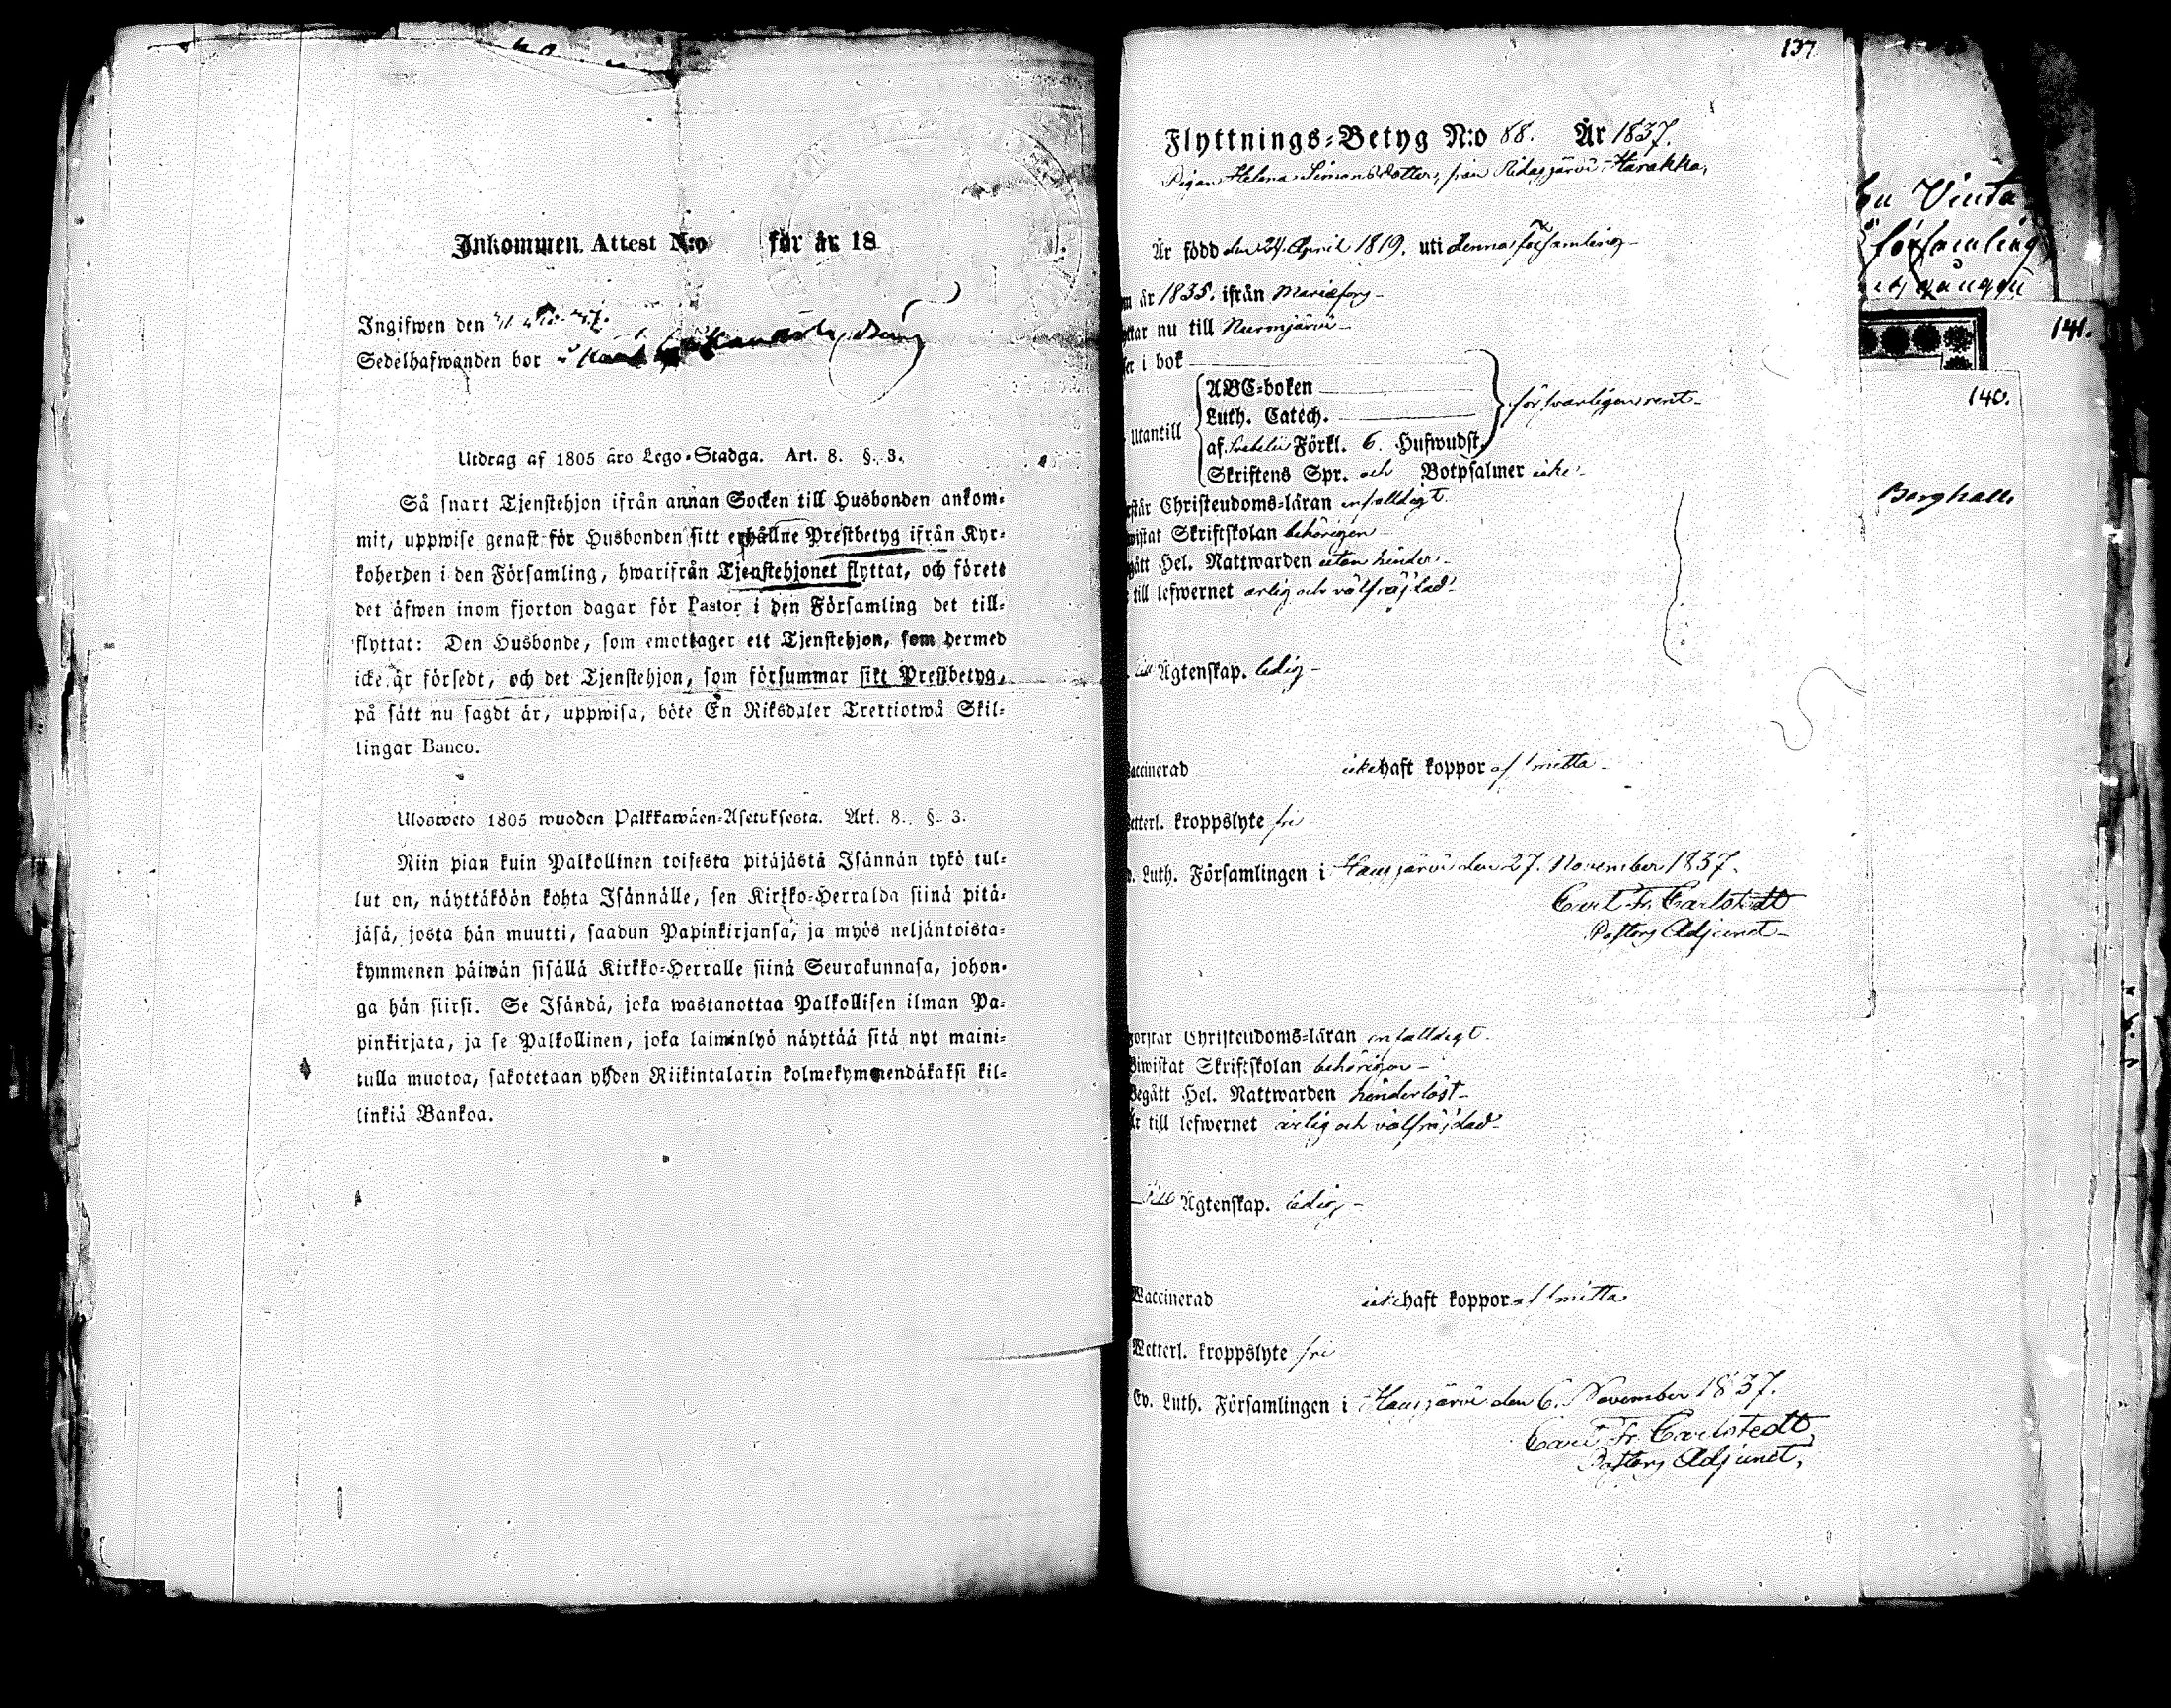 Inkommen Attest N:o för år 18
Ingifwen den
Sedelhafwanden bor
Utdrag af 1805 års Lego-Stadga. Art. 8. §. 3.
Så snart Tjenstehjon ifrån annan Socken till Husbonden ankom-
mit, uppwise genast för Husbonden sitt erhållne Prestbetyg ifrån Kyr-
koherden i den Församling, hwarifrån Tjenstehjonet flyttat, och förete
det äfwen inom fjorton dagar för Pastor i den Församling det till-
flyttat: Den Husbonde, som emottager ett Tjenstehjon, som dermed
icke är försedt, och det Tjenstehjon, som försummar sitt Prestbetyg,
på sätt nu sagdt är, uppwisa, böte En Riksdaler Trettiotwå Skil-
lingar Banco.
Ulosweto 1805 wuoden Palkkawäen-Asetuksesta. Art. 8. §. 3.
Niin pian kuin Palkollinen toisesta pitäjästä Isännän tykö tul-
lut on, näyttäköön kohta Isännälle, sen Kirkko-Herralda siinä pitä-
jäsä, josta hän muutti, saadun Papinkirjansa, ja myös neljäntoista-
kymmenen päiwän sisällä Kirkko-Herralle siinä Seurakunnasa, johon-
ga hän siirsi. Se Isändä, joka wastanottaa Palkollisen ilman Pa-
pinkirjata, ja se Palkollinen, joka laiminlyö näyttää sitä nyt maini-
tulla muotoa, sakotetaan yhden Riikintalarin kolmekymmendäkaksi kil-
linkiä Bankoa.
137
Flyttnings-Betyg N:o 88. År 1837.
Pigan Helena Simansdotter, från Ridasjärvi Harakka,
Är född den 24 April 1819. uti denna församling
år 1835. ifrån Mariæfors
nu till Nurmjärvi
i bok
ABC-boken
Luth. Catech.
försvarligen rent
Utantill
af Svebelii Förkl. 6. Hufwudst.
Skriftens Spr. och Botpsalmer icke
Christendoms-läran enfaldigt.
Skriftskolan behörigen
Hel. Nattwarden utan hinder
till lefwernet ärlig och välfräjdad
till Ägtenskap. ledig
icke haft koppor af smitta
kroppslyte fri
Luth. Församlingen i Hausjärvi den 27. November 1837.
Carl Fr. Carlstedt
Pastors Adjunct
Förstår Christendoms-läran enfaldigt.
Biwistat Skriftskolan behörigen
Begått Hel. Nattwarden hinderlöst
Är till lefwernet ärlig och välfräjdad
till Ägtenskap. ledig
Waccinerad icke haft koppor af smitta
Wetterl. kroppslyte fri
Ev. Luth. Församlingen i Hausjärvi den 6. November 1837.
Carl Fr. Carlstedt
Pastors Adjunct,
församling
141.
140.